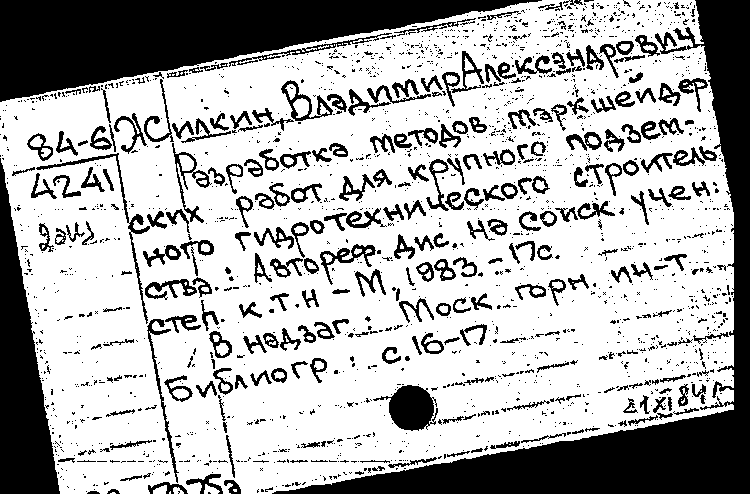 84-6 Жилкин, Владимир Александрович
4241
2экз
Разработка методов маркшейдер
ских работ для крупного подзем-
ного гидротехнического строитель
ства.: Автореф. дис. на соиск. учен.
степ. к.т.н – М., 1983. – 17с.
В надзаг.: Моск. горн. ин-т.
Библиогр.: с.16-17.
21 XI 84